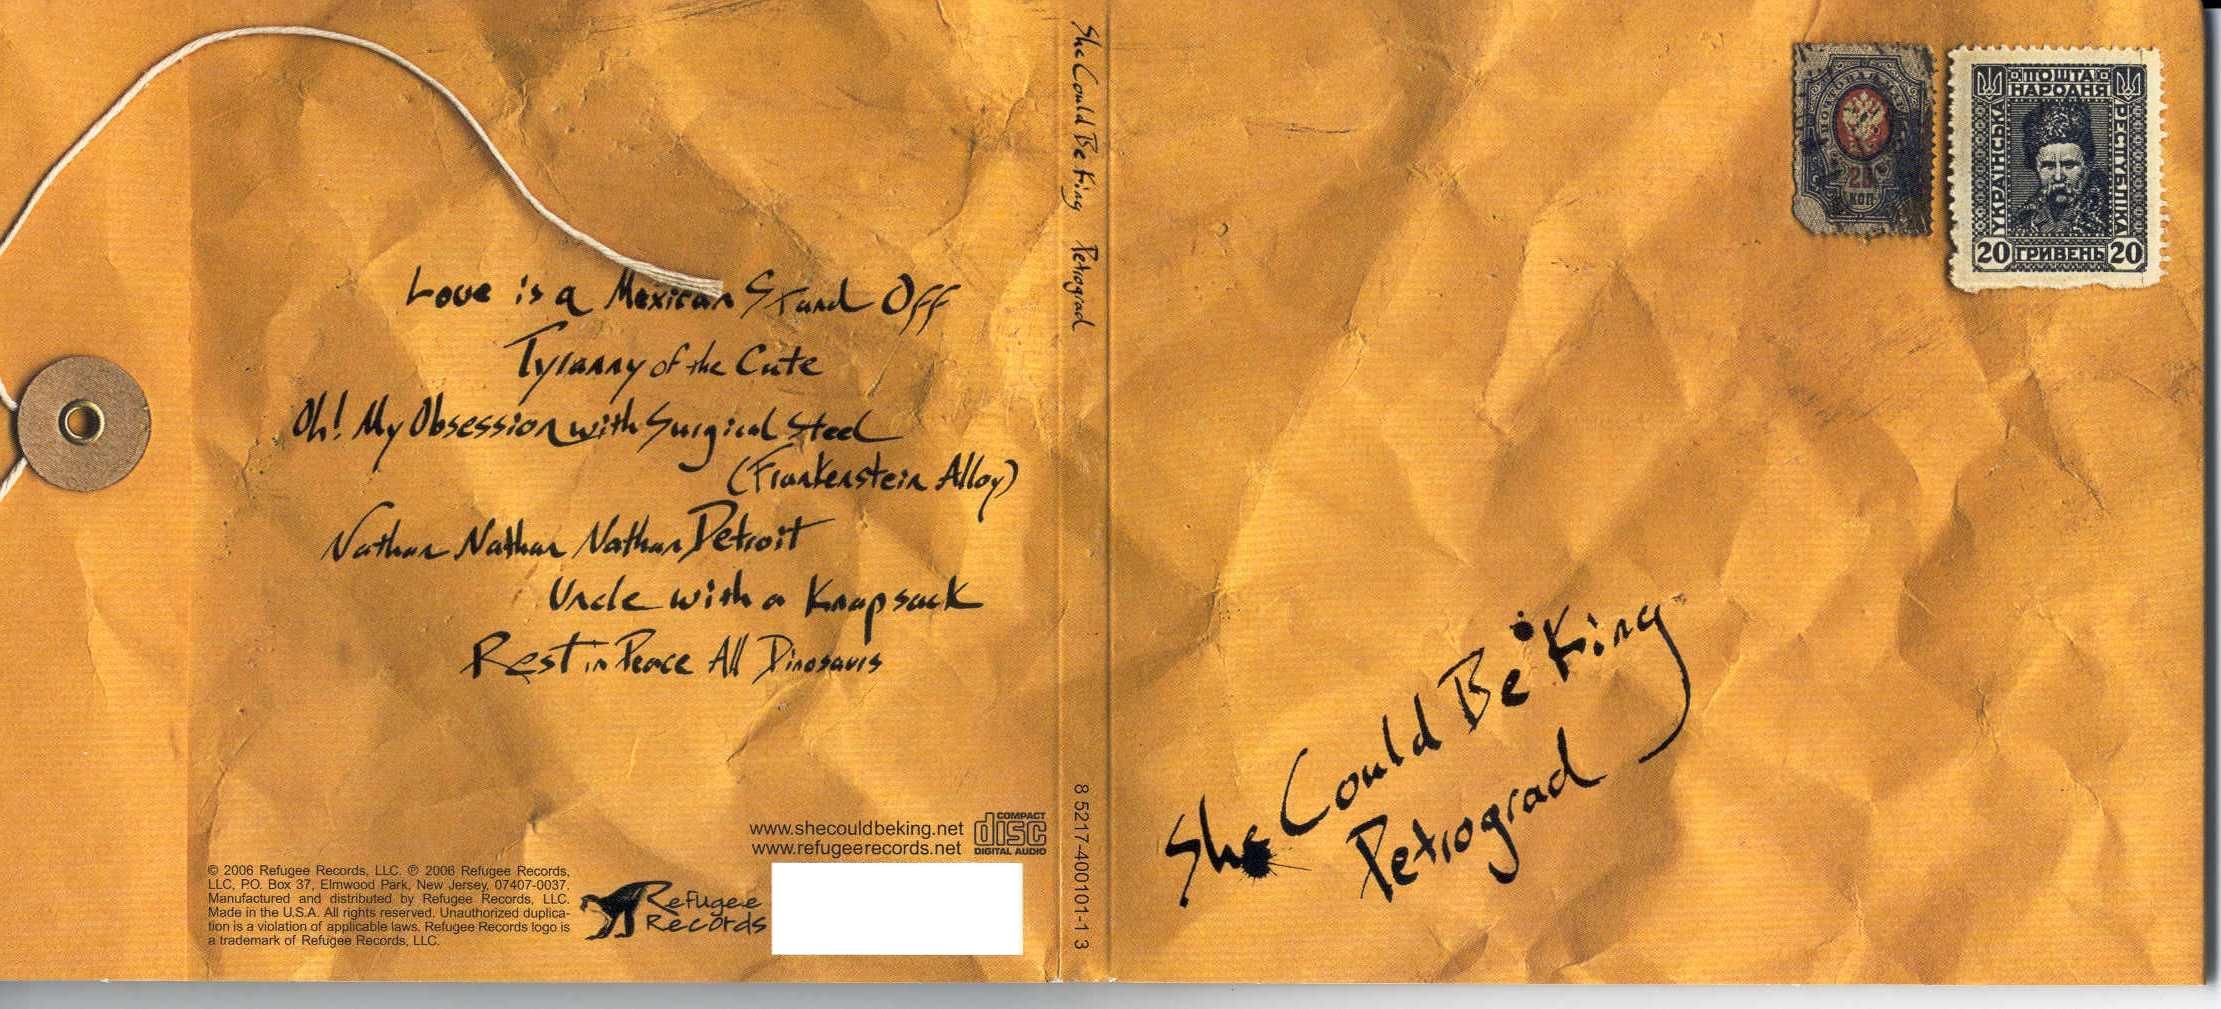 Love is a Mexican Stand Off
Tyranny of the Cute
Oh! My Obsession with Surgical Steel
(Frankenstein Alloy)
Nathan Nathan Nathan Detroit
Uncle with a Knapsack
Rest in Peace All Dinosaurs
www.shecouldbeking.net
www.refugeerecords.net
COMPACT
disc
DIGITAL AUDIO
© 2006 Refugee Records, LLC. ℗ 2006 Refugee Records,
LLC, P.O. Box 37, Elmwood Park, New Jersey, 07407-0037.
Manufactured and distributed by Refugee Records, LLC.
Made in the U.S.A. All rights reserved. Unauthorized duplica-
tion is a violation of applicable laws. Refugee Records logo is
a trademark of Refugee Records, LLC.
Refugee
Records
She Could Be King Petrograd
8 5217-400101-1 3
КОП
ПОШТА
НАРОДНЯ
УКРАЇНСЬКА
РЕСПУБЛІКА
20 ГРИВЕНЬ 20
She Could Be King
Petrograd